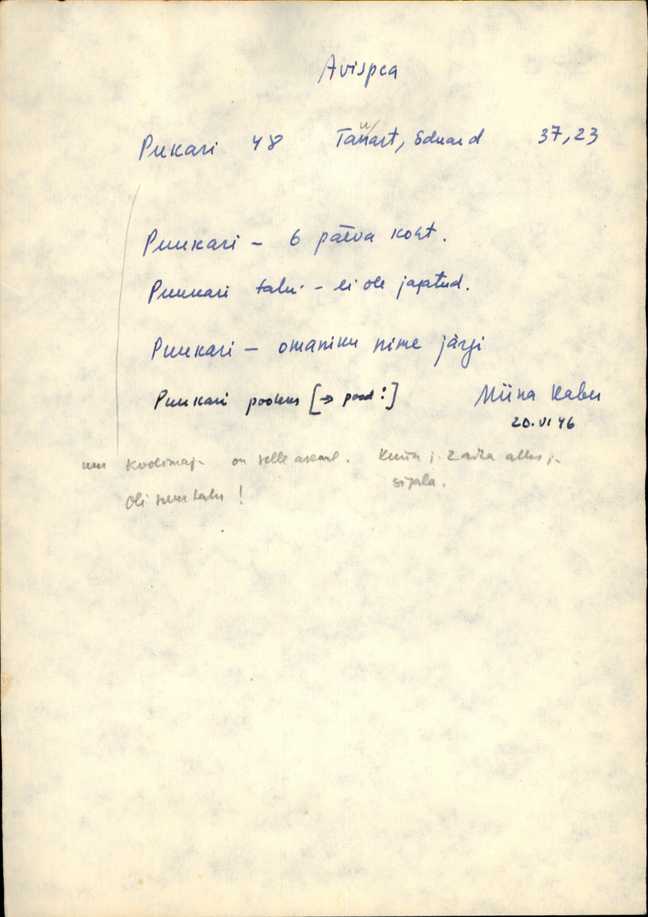 Avispea
Pukari 48 Tannart, Eduard 37,23
Puukari – 6 päeva koht.
Puukari talu – ei ole jagatud.
Puukari – omaniku nime järgi
Puukari pookus [→ pood!] Miina Kabu
20.VI 46
on selle asemel. 2 aita alles j.
sigala.
Oli suur talu!